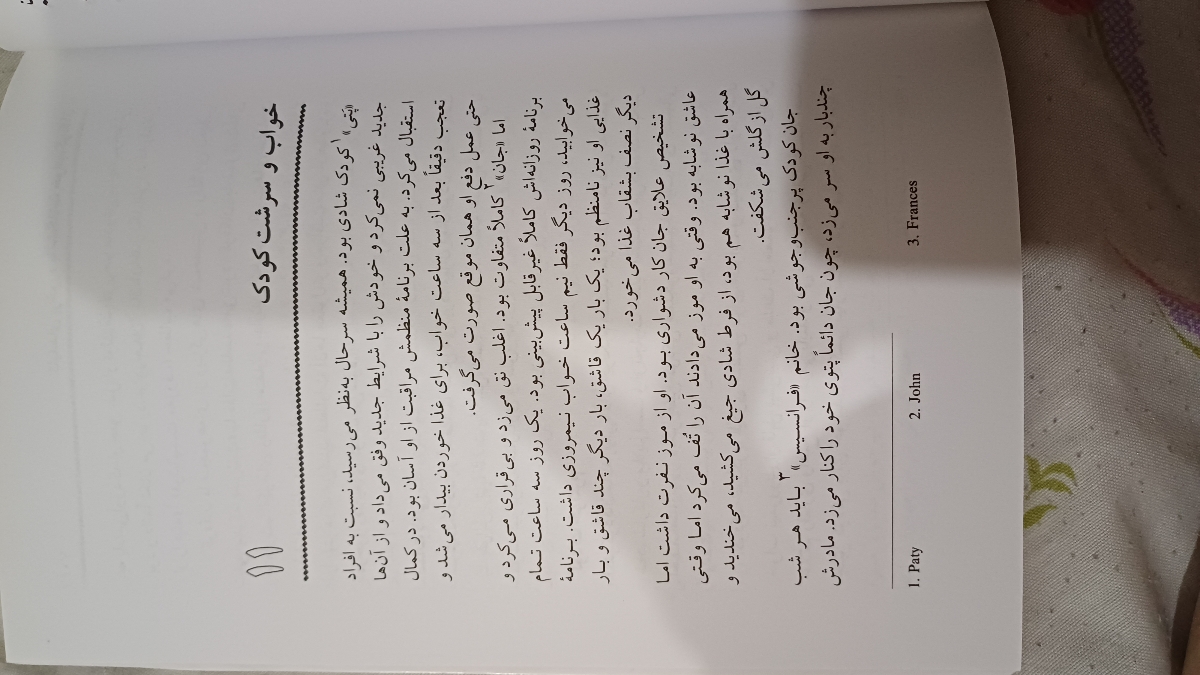 ۱۱
خواب و سرشت کودک
«پَتی»۱ کودک شادی بود. همیشه سرحال به‌نظر می‌رسید، نسبت به افراد
جدید غریبی نمی‌کرد و خودش را با شرایط جدید وفق می‌داد و از آن‌ها
استقبال می‌کرد. به علت برنامهٔ منظمش مراقبت از او آسان بود. در کمال
تعجب دقیقاً بعد از سه ساعت خواب، برای غذا خوردن بیدار می‌شد و
حتی عمل دفع او همان موقع صورت می‌گرفت.
اما «جان»۲ کاملاً متفاوت بود. اغلب نق می‌زد و بی‌قراری می‌کرد و
برنامهٔ روزانه‌اش کاملاً غیرقابل پیش‌بینی بود. یک روز سه ساعت تمام
می‌خوابید، روز دیگر فقط نیم ساعت خواب نیمروزی داشت. برنامهٔ
غذایی او نیز نامنظم بود؛ یک بار یک قاشق، بار دیگر چند قاشق و بار
دیگر نصف بشقاب غذا می‌خورد.
تشخیص علایق جان کار دشواری بود. او از موز نفرت داشت اما
عاشق نوشابه بود. وقتی به او موز می‌دادند آن را تُف می‌کرد اما وقتی
همراه با غذا نوشابه هم بود، از فرط شادی جیغ می‌کشید، می‌خندید و
گل از گلش می‌شکفت.
جان کودک پرجنب‌وجوشی بود. خانم «فرانسیس»۳ باید هر شب
چندبار به او سر می‌زد، چون جان دائماً پتوی خود را کنار می‌زد. مادرش
1. Paty 2. John 3. Frances